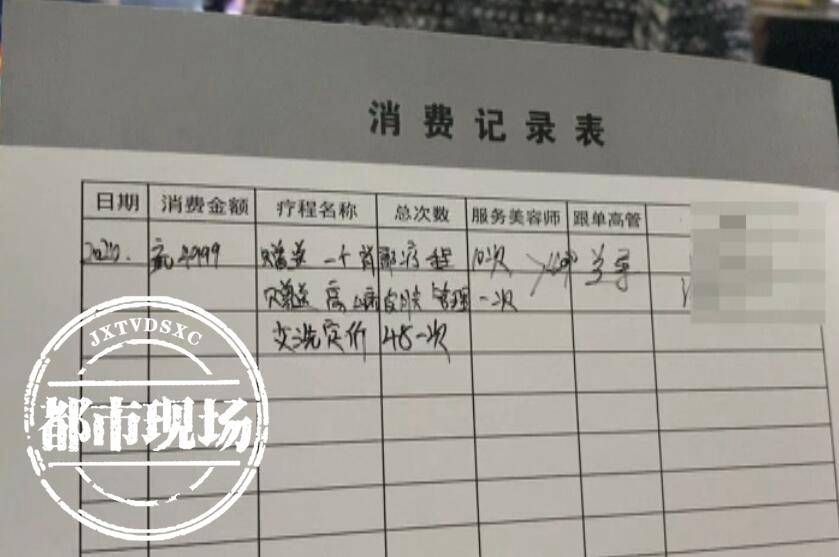 消费记录表
日期 消费金额 疗程名称 总次数 服务美容师 跟单高管
2020. 充4999 赠送一个肩部疗程 10次
赠送 皮肤管理 一次
定价 48一次
JXTVDSXC
都市现场